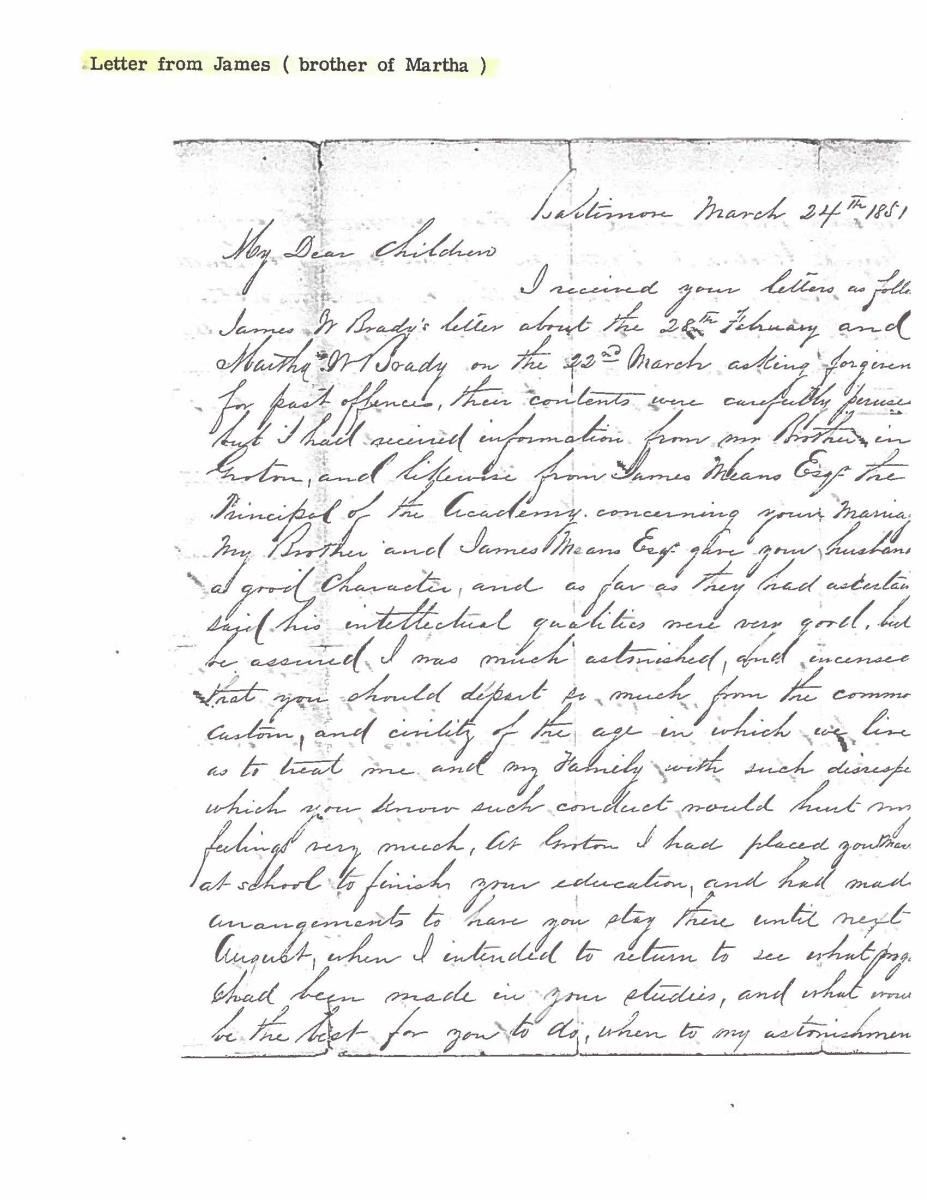 Letter from James ( brother of Martha )
Baltimore March 24th 1851
My Dear Children
I received your letters as folle
James W Brady's letter about the 28th February and
Martha W Brady on the 22nd March asking forgiven
for past offences, their contents were carefully peruse
but I had received information from my Brother in
Groton, and likewise from James Means Esqr the
Principal of the Academy concerning your Marria
My Brother and James Means Esqr gave your husban
a good Character, and as far as they had ascertai
said his intellectual qualities were very good, but
be assured I was much astonished, and incensed
that you should depart so much from the commo
custom, and civility of the age in which we live
as to treat me and my Family with such disrespe
which you know such conduct would hurt my
feelings very much, At Groton I had placed you
at school to finish your education, and had mad
arrangements to have you stay there until next
August, when I intended to return to see what prog
had been made in your studies, and what wou
be the best for you to do, when to my astonishmen